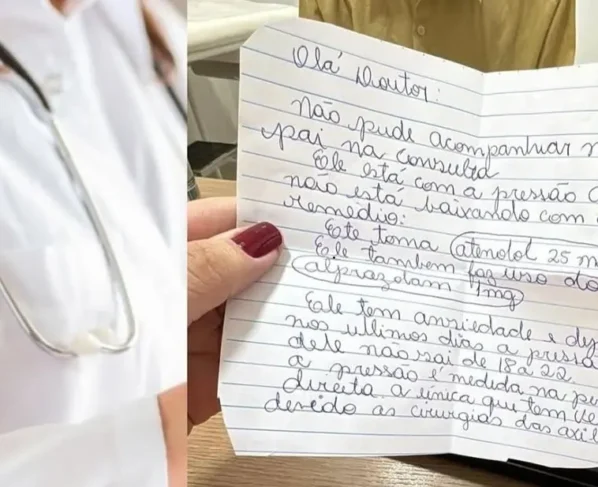 Olá Doutor:
não pude acompanhar
pai na consulta
Ele está com a pressão
não está baixando com
remédio:
Ele toma atenolol 25 m
Ele também faz uso do
alprazolam 1mg
Ele tem ansiedade e
nos ultimos dias a
dele não sai de 18 a 22
a pressão é medida na
direita a única que tem
devido as cirurgias das